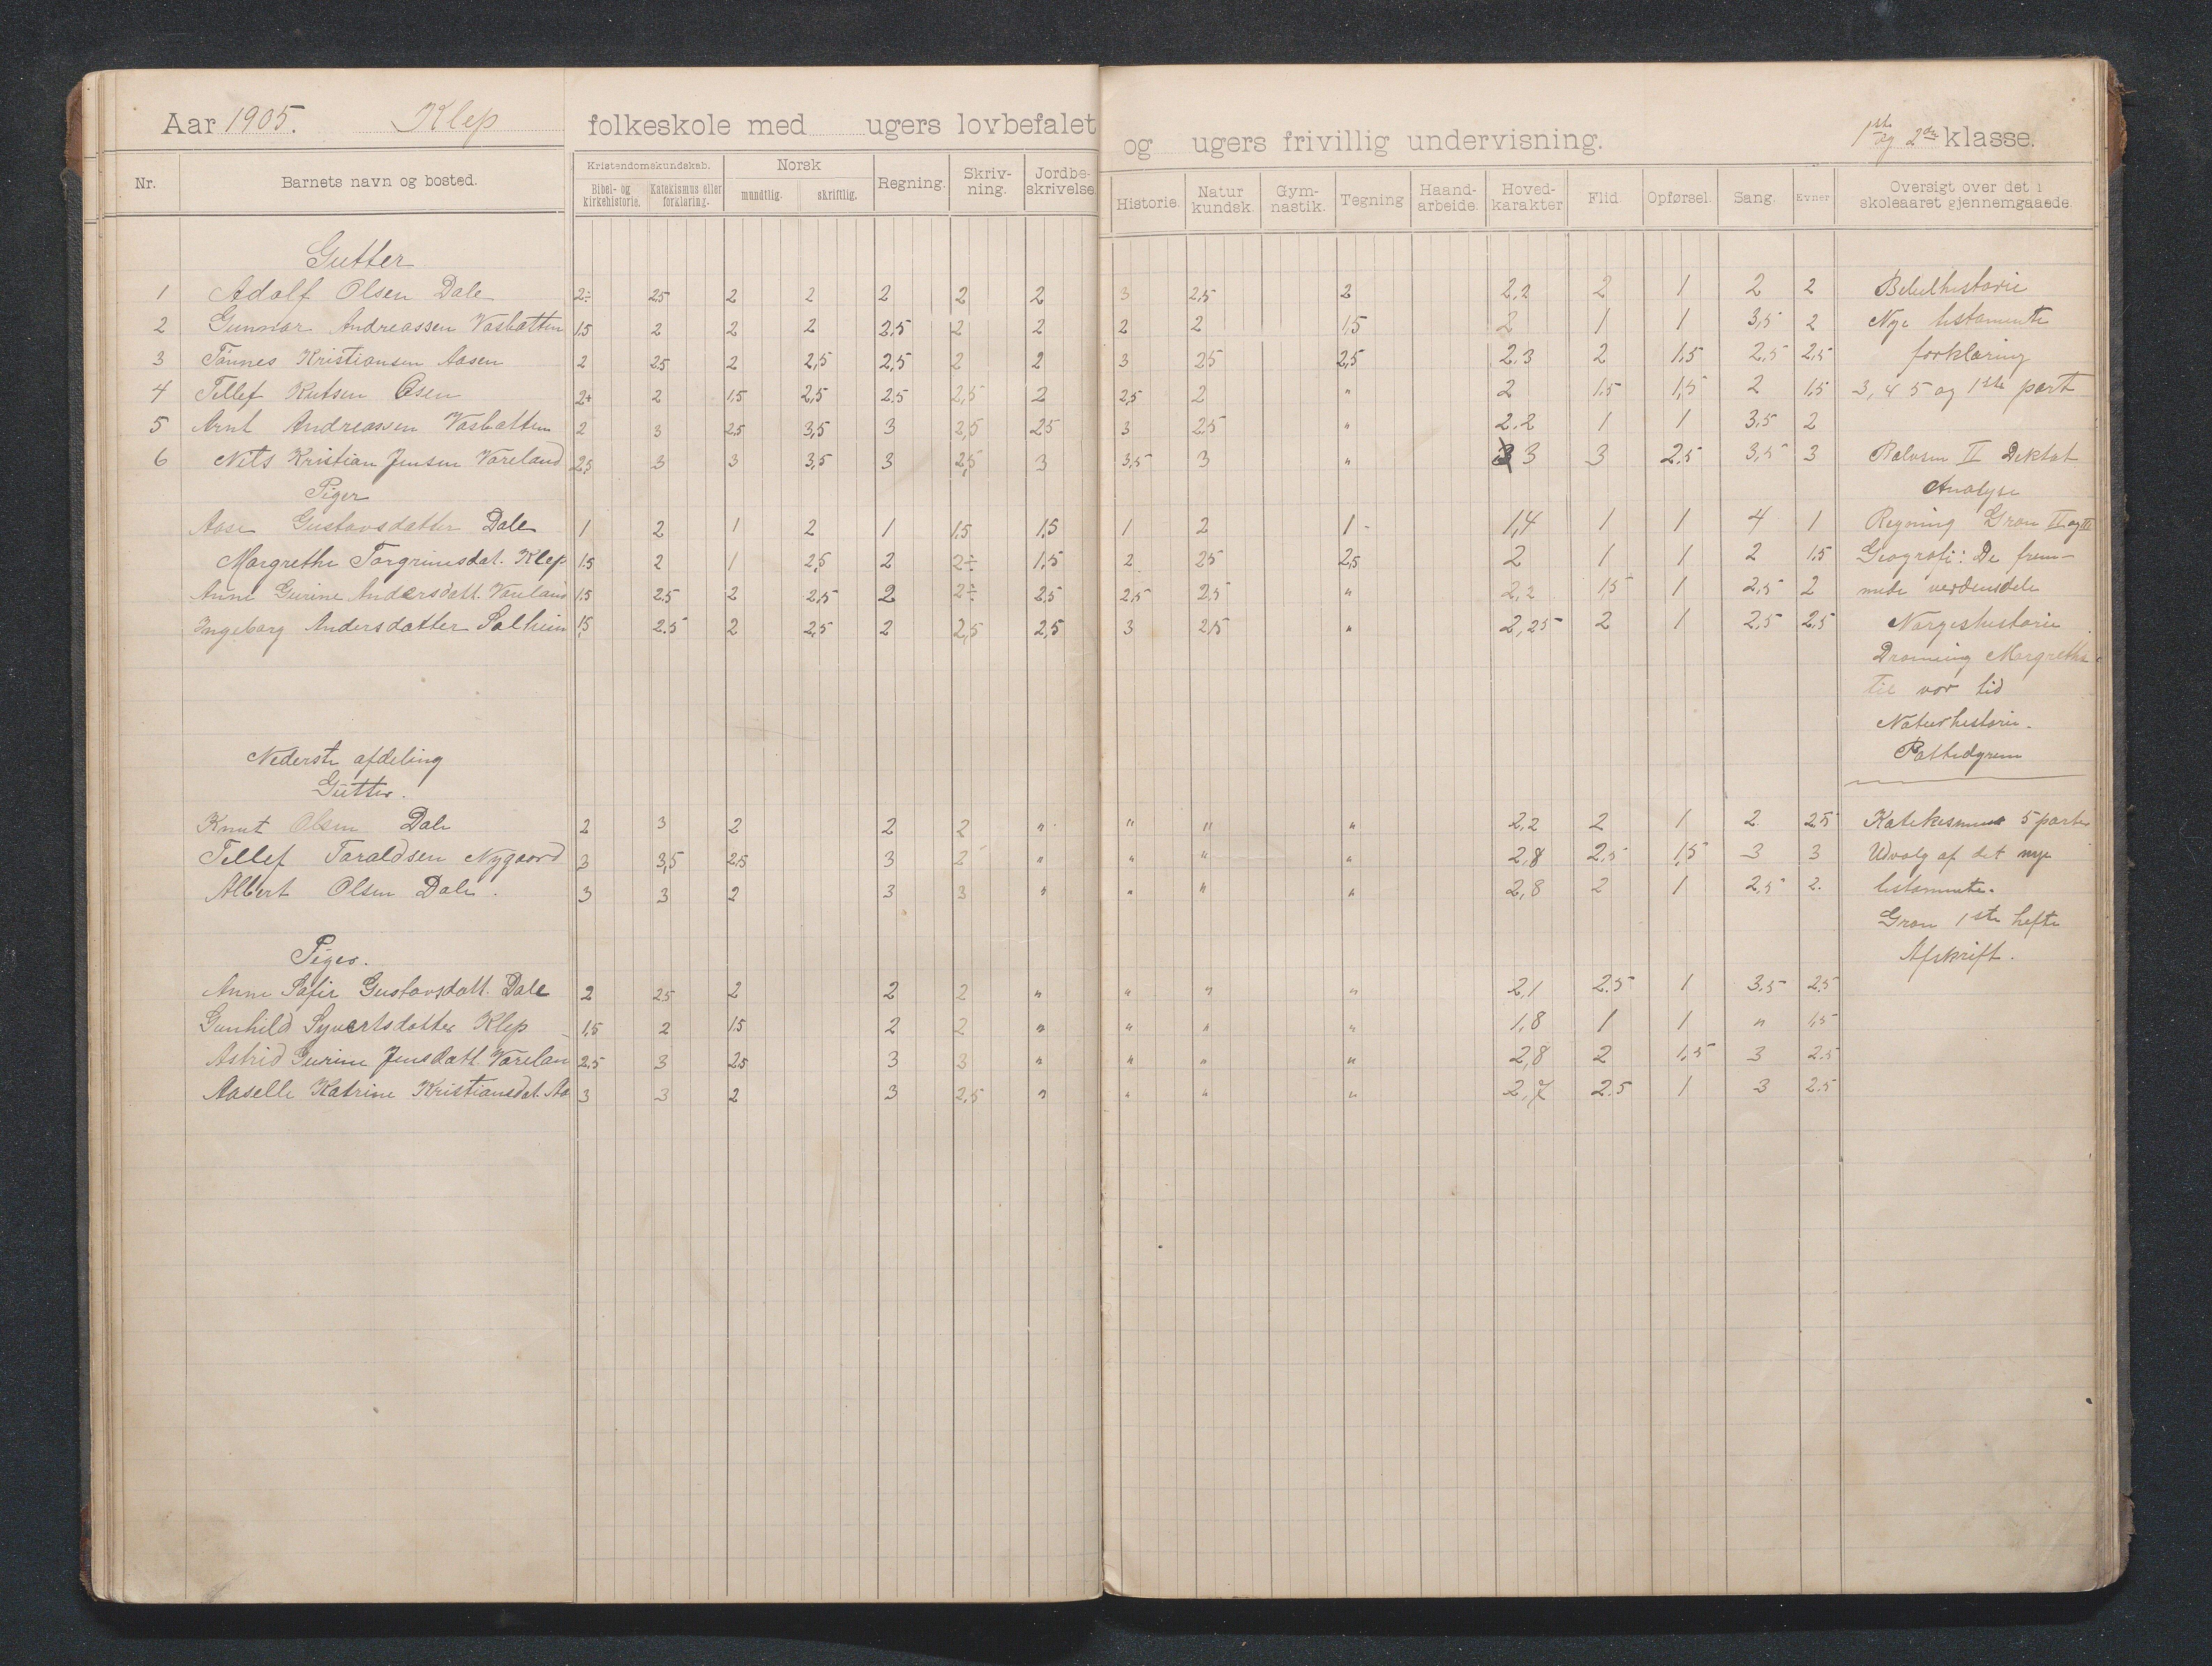 Aar 1905. Klep folkeskole med ugers lovbefalet og ugers frivillig undervisning. 1ste og 2den klasse.
Nr. Barnets navn og bosted. Kristendomskundskab. Bibel- og kirkehistorie. Katekismus eller forklaring. Norsk mundtlig. skriftlig. Regning. Skriv-ning. Jordbe-skrivelse. Historie. Natur kundsk. Gym-nastik. Tegning Haand-arbeide. Hoved-karakter Flid. Opførsel. Sang. Evner Oversigt over det i skoleaaret gjennemgaaede.
Gutter
1 Adolf Olsen Dale 2÷ 2,5 2 2 2 2 2 3 2,5 2 2,2 2 1 2 2 Bibelhistorie
2 Gunnar Andreassen Vasbatten 1,5 2 2 2 2,5 2 2 2 2 1,5 2 1 1 3,5 2 Nye testamente
3 Tønnes Kristiansen Aasen 2 2,5 2 2,5 2,5 2 2 3 2,5 2,5 2.3 2 1,5 2,5 2,5 forklaring
4 Tellef Knutsen Osen 2+ 2 1,5 2,5 2.5 2,5 2 2,5 2 " 2 1.5 1,5 2 1,5 3, 4 5 og 1ste part
5 Arnt Andreassen Vasbatten 2 3 2,5 3,5 3 2,5 2,5 3 2,5 " 2.2 1 1 3,5 2
6 Nils Kristian Jensen Vareland 2,5 3 3 3,5 3 2,5 3 3,5 3 " 3 3 2,5 3,5 3 Paulsen II Diktat
Piger Analyse
Aase Gustavsdatter Dale 1 2 1 2 1 1,5 1,5 1 2 1- 1,4 1 1 4 1 Regning Gran II og III
Margrethe Torgrimsdat. Klep 1,5 2 1 2,5 2 2÷ 1,5 2 2,5 2,5 2 1 1 2 1,5 Geografi: De frem-
Anne Gurine Andersdatt. Vareland 1,5 2,5 2 2,5 2 2÷ 2,5 2,5 2,5 " 2,2 1,5 1 2,5 2 mede verdensdele
Ingeborg Andersdatter Solheim 1,5 2.5 2 2,5 2 2,5 2,5 3 2,5 " 2,25 2 1 2,5 2,5 Norgeshistorie
Dronning Margrethe
til vor tid
Naturhistorie.
Nederste afdeling Pattedyrene
Gutter.
Knut Olsen Dale 2 3 2 2 2 " " " " 2,2 2 1 2 2,5 Katekismus 5 parter
Tellef Taraldsen Nygaard 3 3,5 2,5 3 2 " " " " 2,8 2,5 1,5 3 3 Udvalg af det nye
Albert Olsen Dale. 3 3 2 3 3 " " " " 2,8 2 1 2,5 2. testamente.
Gran 1ste hefte
Piger. Afskrift.
Anne Sofie Gustavsdatt. Dale 2 2,5 2 2 2 " " " " 2,1 2.5 1 3,5 2,5
Gunhild Syvertsdatter Klep 1,5 2 1,5 2 2 " " " " 1,8 1 1 " 1,5
Astrid Gurine Jensdatt. Varelan 2,5 3 2,5 3 3 " " " " 2,8 2 1,5 3 2.5
Aaselle Katrine Kristiansdat. Aa 3 3 2 3 2,5 " " " " 2,7 2.5 1 3 2.5